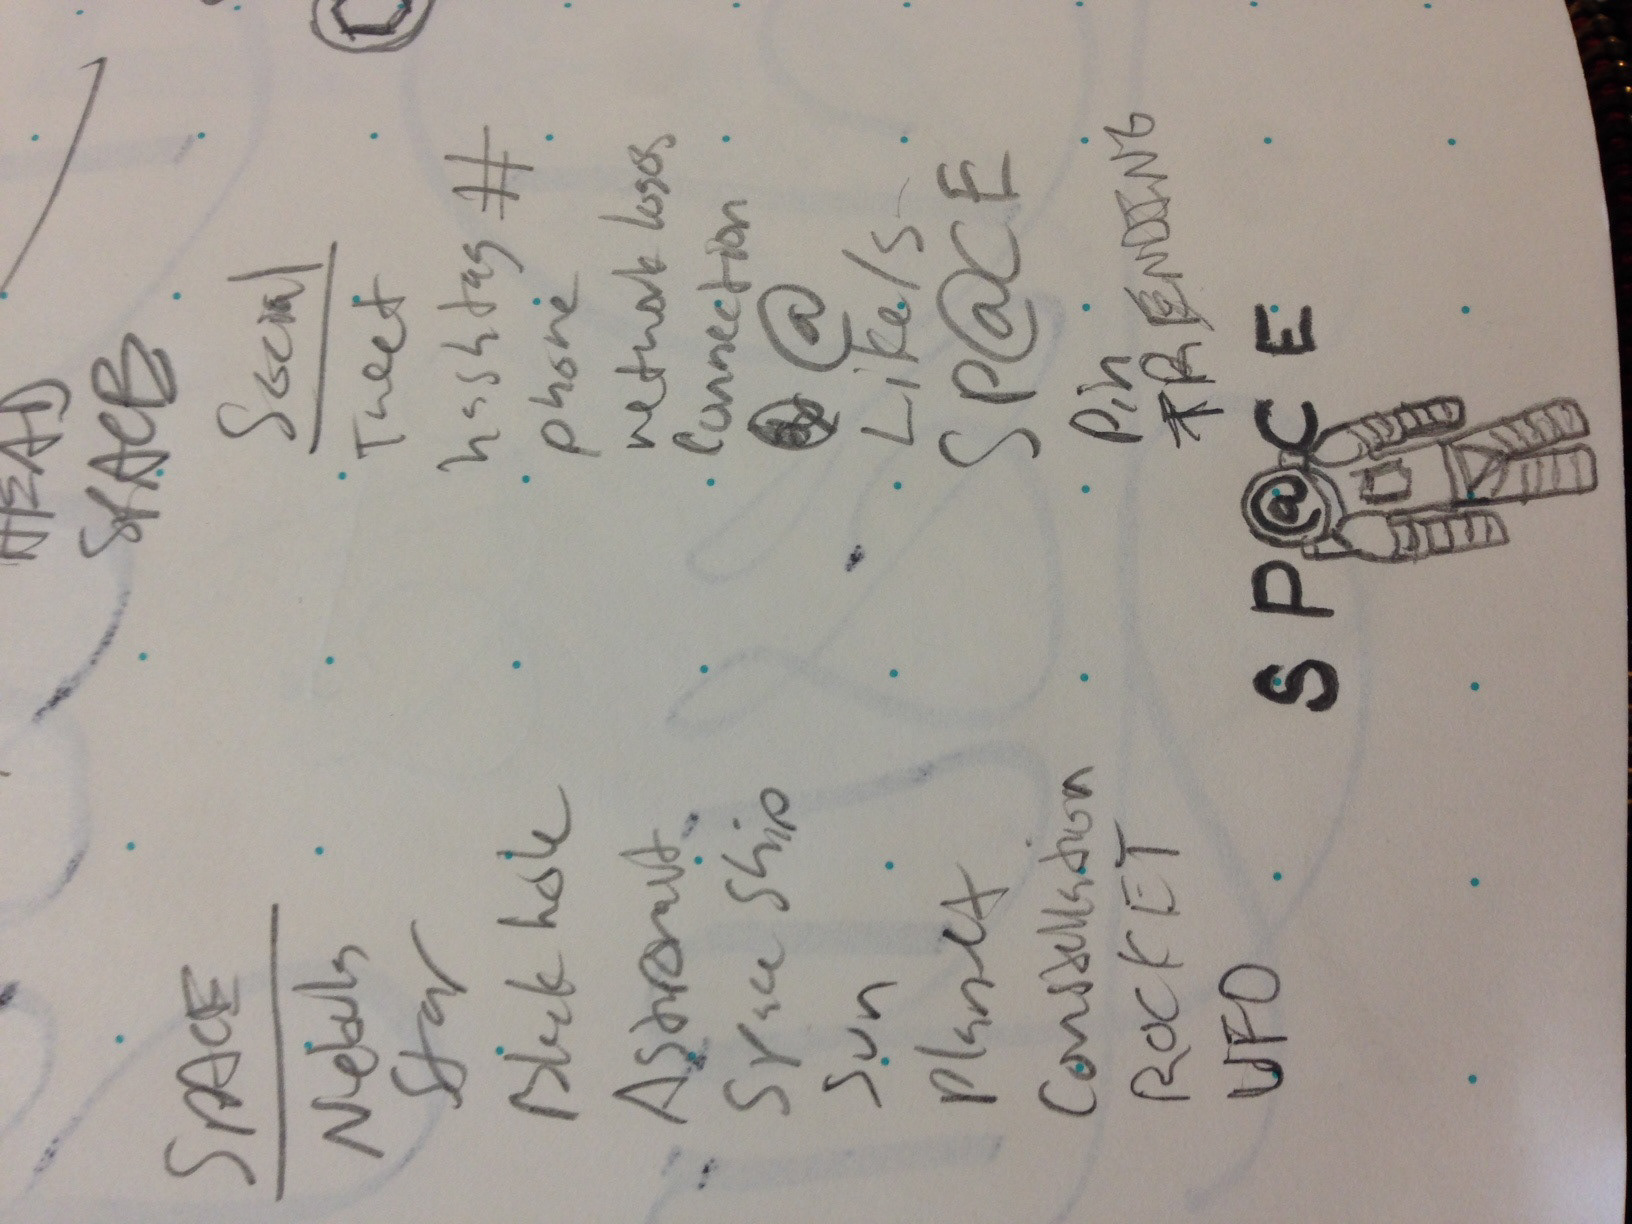 HEAD
SPACE
SPACE
Nebula
Star
Black hole
Astronaut
Space Ship
Sun
Planet
Constellation
ROCKET
UFO
Social
Tweet
hashtag #
phone
network logos
Connection
@
Like/s
SP@CE
Pin
TRENDING
SP@CE